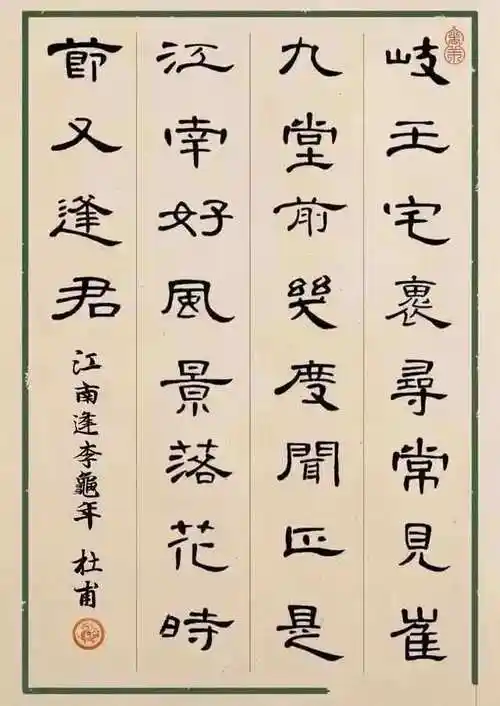 岐王宅裏尋常見崔
九堂前幾度聞正是
江南好風景落花時
節又逢君
江南逢李龜年 杜甫